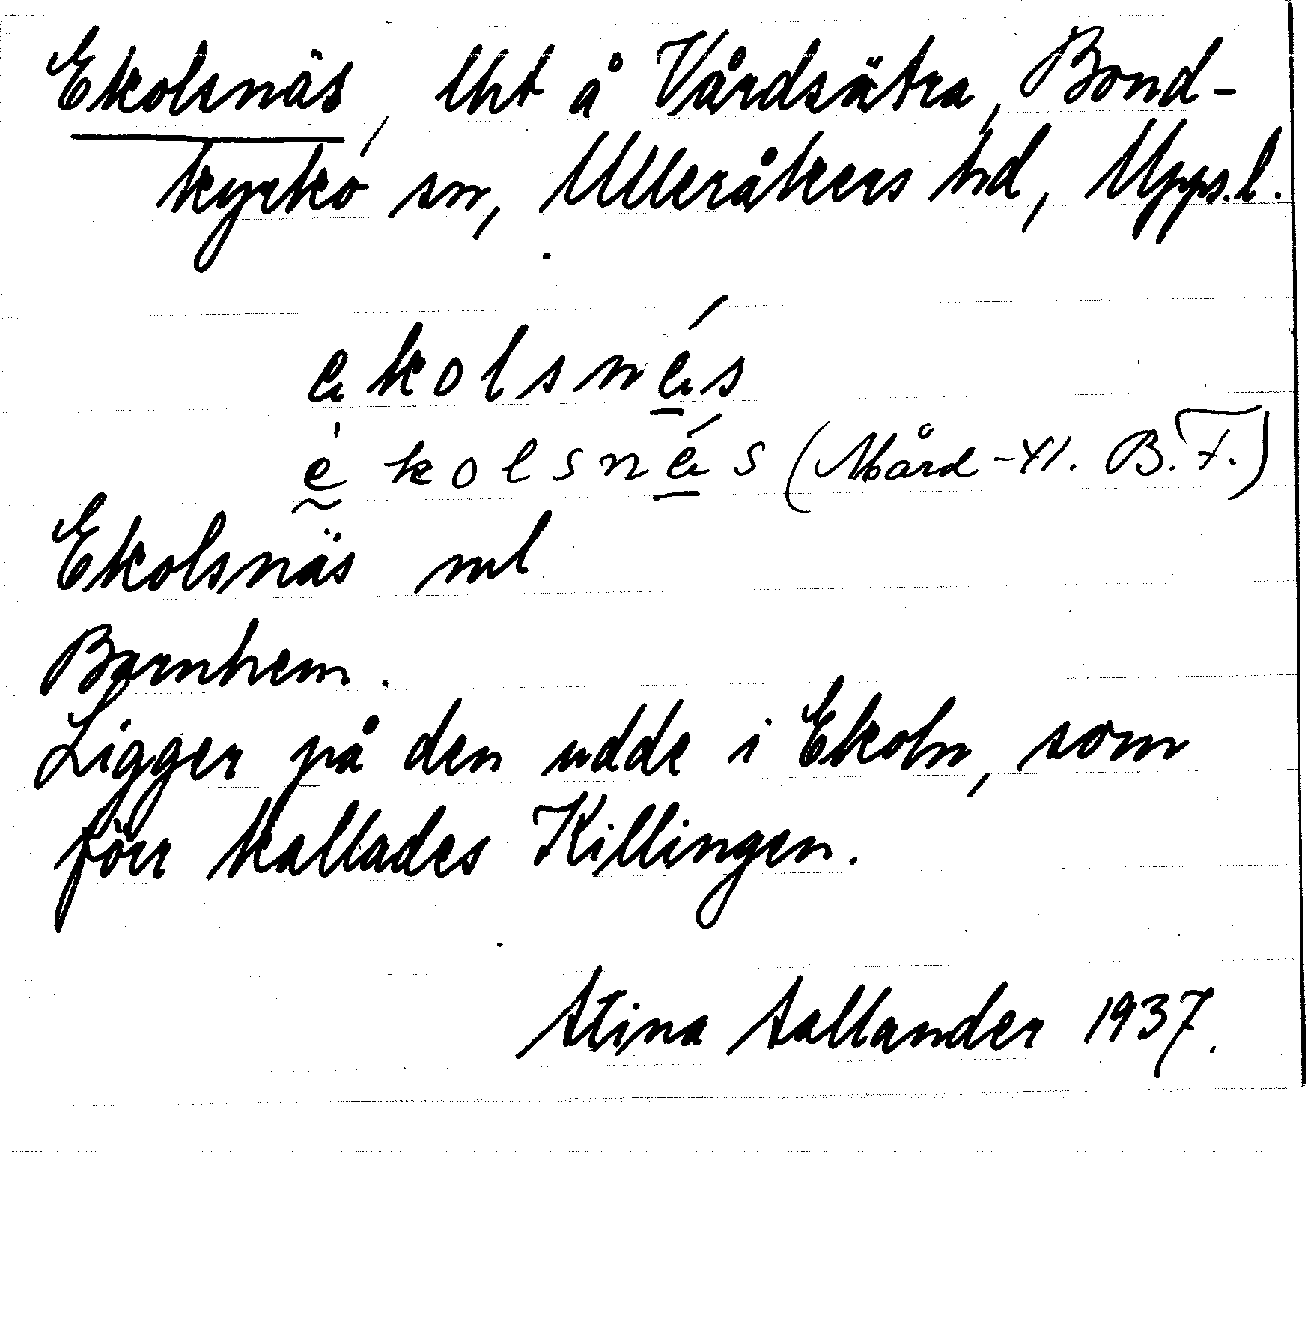 Ekolsnäs, lht å Vårdsätra, Bond-
kyrko sn, Ulleråkers hd, Upps.l.
ekolsnés
èkolsnés (Mård-Yl. B.F.)
Ekolsnäs ml
Barnhem.
Ligger på den udde i Ekoln, som
förr kallades Killingen.
Stina Sallander 1937.